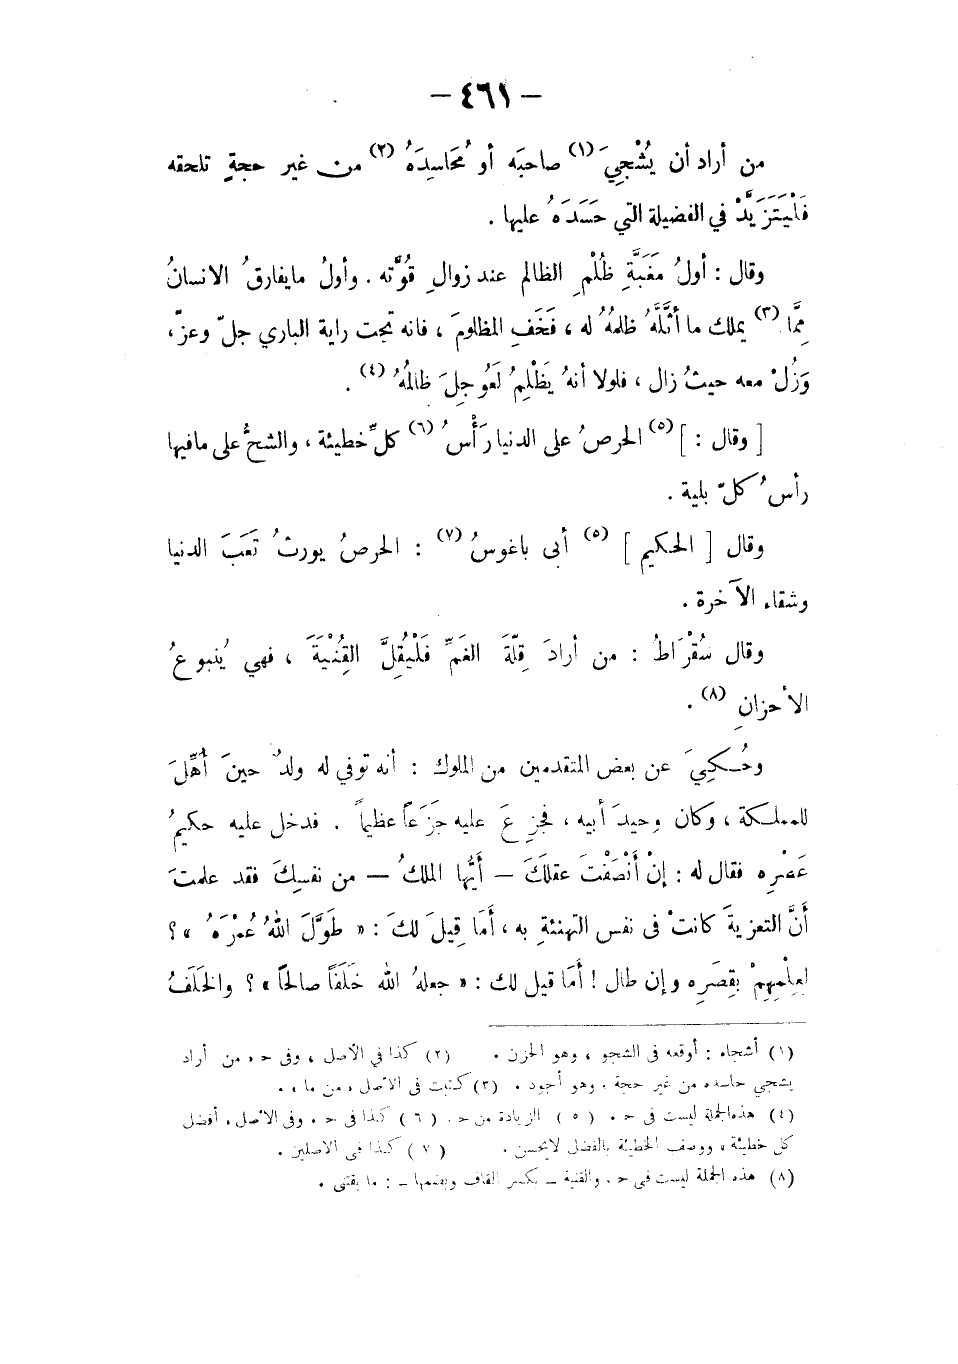 – ٤٦١ –
من أراد أن يُشْجِيَ (١) صاحبَه أو مُحَاسِدَهُ (٢) من غير حجةٍ تلحقه
فَلْيَتَزَيَّدْ في الفضيلة التي حَسَدَهُ عليها .
وقال : أولُ مَغَبَّةِ ظُلْمِ الظالم عند زوالِ قُوَّته . وأولُ مايفارقُ الانسانُ
مِمَّا (٣) يملك ما أثَّلَهُ ظلمُهُ له ، فَخَفِ المظلومَ ، فانه تحت راية الباري جلّ وعزّ،
وَزُلْ معه حيثُ زال ، فلولا أنهُ يَظْلِمُ لَعُوجِلَ ظالمُهُ (٤) .
[ وقال : ] (٥) الحرصُ على الدنيا رَأْسُ (٦) كلِّ خطيئة ، والشحُّ على مافيها
رأسُ كلّ بلية .
وقال [ الحكيم ] (٥) أبى باغوسُ (٧) : الحرصُ يورثُ تَعَبَ الدنيا
وشقاء الآخرة .
وقال سُقْرَاطُ : من أرادَ قِلّةَ الغَمِّ فَلْيُقِلَّ القِنْيَةَ ، فهي يُنبوعُ
الأحزانِ (٨) .
وحُكِيَ عن بعض المتقدمين من الملوك : أنه توفي له ولدٌ حينَ أُهِّلَ
للمملكة ، وكان وحيدَ أبيه ، فجزِعَ عليه جَزَعاً عظيماً . فدخل عليه حكيمُ
عَصْرِه فقال له : إنْ أَنْصَفْتَ عقلَكَ – أَيُّها الملكُ – من نفسِكَ فقد علمتَ
أَنَّ التعزيةَ كانتْ فى نفس التهنئةِ به ، أَمَا قِيلَ لكَ : « طَوَّلَ اللهُ عُمْرَهُ » ؟
لِعِلْمِهِمْ بِقِصَرِه وإن طال ! أَمَا قيل لك : « جعلهُ الله خَلَفَاً صالحاً » ؟ والخَلَفُ
(١) أشجاه : أوقعه فى الشجو ، وهو الحزن . (٢) كذا في الأصل ، وفى حـ « من أراد
يشجي حاسده من غير حجة » وهو أجود . (٣) كتبت فى الأصل « من ما » .
(٤) هذه الجملة ليست فى حـ . (٥) الزيادة من حـ . (٦) كذا فى حـ . وفى الأصل « أفضل
كل خطيئة » ووصف الخطيئة بالفضل لايحسن . (٧) كذا فى الاصلين .
(٨) هذه الجملة ليست فى حـ . والقنية – بكسر القاف وبضمها – : ما يقتنى .